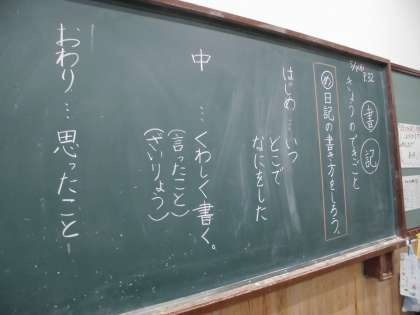 書記
P.32
きょうのできごと
め日記の書き方をしろう。
はじめ…いつ
どこで
なにをした
中…くわしく書く。
(言ったこと)
(ざいりょう)
おわり…思ったこと